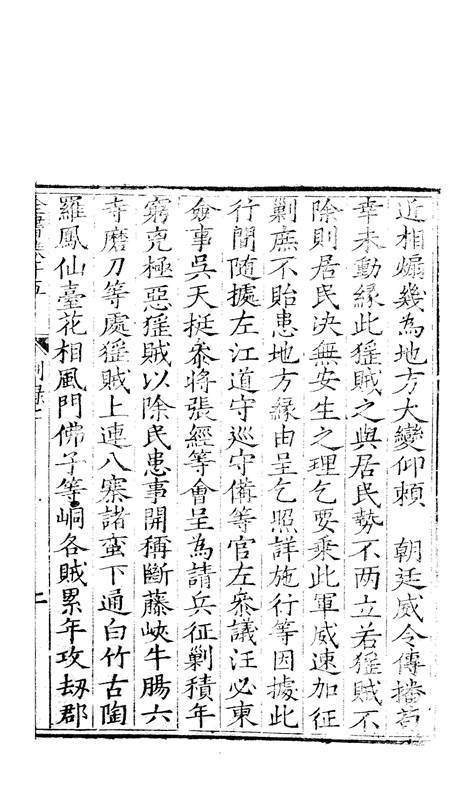 近相煽幾為地方大變仰賴　朝廷威令傳播苟
幸未動緣此猺賊之與居民勢不两立若猺賊不
除則居民決無安生之理乞要乘此軍威速加征
剿庶不貽患地方緣由呈乞照詳施行等因據此
行間隨據左江道守巡守備等官左叅議汪必東
僉事吳天挺叅將張經等會呈為請兵征剿積年
窮兇極惡猺賊以除民患事開稱斷藤峽牛腸六
寺磨刀等處猺賊上連八寨諸蛮下通白竹古陶
羅鳳仙臺花相風門佛子等峒各賊累年攻刼郡
二